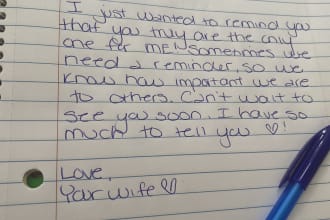 I just wanted to remind you
that you truly are the only
one for me! Sometimes we
need a reminder, so we
know how important we are
to others. Can't wait to
see you soon. I have so
much to tell you ♡!
Love,
Your Wife ♡